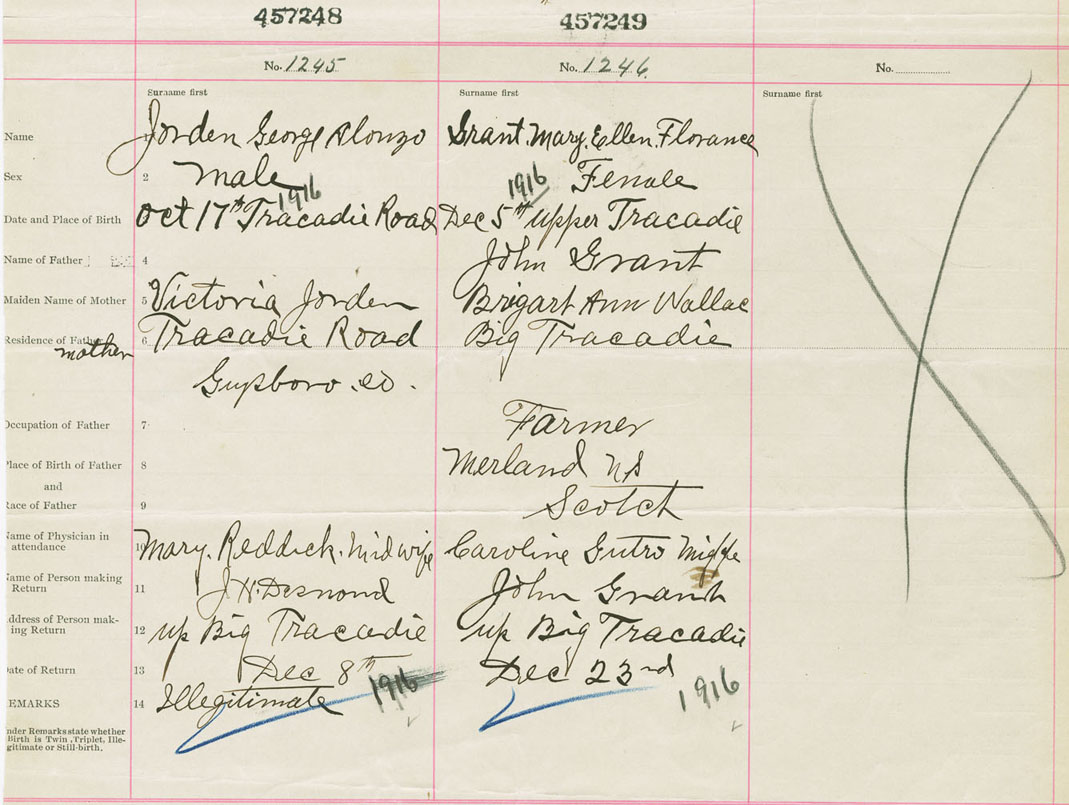 457248 457249
No. 1245 No. 1246. No.
Surname first Surname first Surname first
Name 1 Jorden George Alonzo Grant. Mary. Ellen. Florance
Sex 2 Male Female
1916 1916
Date and Place of Birth Oct 17th Tracadie Road Dec 5th upper Tracadie
Name of Father 4 John Grant
Maiden Name of Mother 5 Victoria Jorden Brigart Ann Wallac
Residence of Father 6 Tracadie Road Big Tracadie
mother
Guysboro. co.
Occupation of Father 7 Farmer
Place of Birth of Father 8 Merland NS
and
Race of Father 9 Scotch
Name of Physician in
attendance 10 Mary. Reddick. Midwife Caroline Gutro
Name of Person making
Return 11 J. H. Desmond John Grant
Address of Person mak-
ing Return 12 up Big Tracadie up Big Tracadie
Date of Return 13 Dec 8th 1916 Dec 23rd 1916
REMARKS 14 Illegitimate
Under Remarks state whether
Birth is Twin, Triplet, Ille-
gitimate or Still-birth.